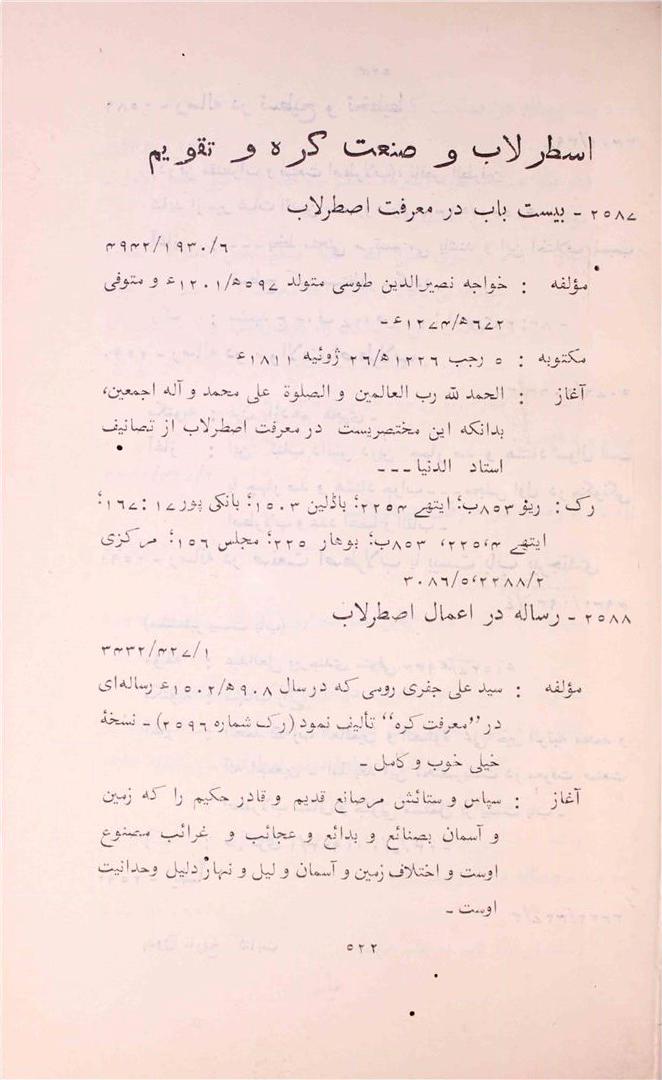 اسطرلاب و صنعت کره و تقویم
۲۵۸۷ - بیست باب در معرفت اصطرلاب
۴۹۴۲/۱۹۳۰/۶
مؤلفه : خواجه نصیرالدین طوسی متولد ۵۹۷ھ/۱۲۰۱ع و متوفی
۶۷۲ھ/۱۲۷۴ع -
مکتوبه : ۵ رجب ۱۲۲۶ھ/۲۶ ژوئیه ۱۸۱۱ع
آغاز : الحمد لله رب العالمین و الصلوة علی محمد و آله اجمعین،
بدانکه این مختصریست در معرفت اصطرلاب از تصانیف
استاد الدنیا ---
رک : ریو ۴۵۳ب؛ ایتهے ۲۲۵۴؛ باڈلین ۱۵۰۳؛ بانکی پور ۱۷ : ۱۶۷؛
ایتهے ۲۲۵،۴، ۸۵۳ب؛ بوهار ۲۲۵؛ مجلس ۱۵۶؛ مرکزی
۳۰۸۶/۵،۲۲۸۸/۲
۲۵۸۸ - رساله در اعمال اصطرلاب
۳۴۳۲/۴۲۷/۱
مؤلفه : سید علی جفری رومی که در سال ۹۰۸ھ/۱۵۰۲ع رساله‌ای
در ”معرفت کره“ تألیف نمود (رک شماره ۲۵۹۶) - نسخهٔ
خیلی خوب و کامل -
آغاز : سپاس و ستائش مرصانع قدیم و قادر حکیم را که زمین
و آسمان بصنائع و بدائع و عجائب و غرائب مصنوع
اوست و اختلاف زمین و آسمان و لیل و نهار دلیل وحدانیت
اوست -
۵۲۲